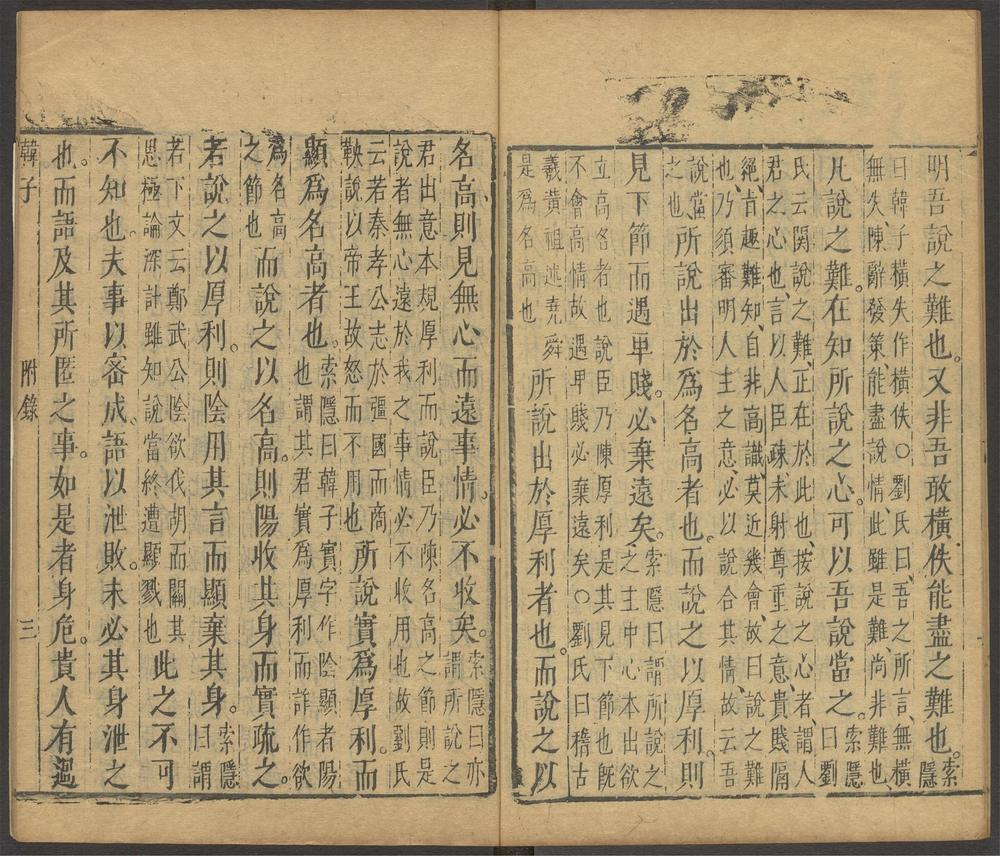 明吾說之難也。又非吾敢橫佚能盡之難也。索隱
曰韓子橫失作橫佚○劉氏曰吾之所言無橫
無失陳辭發策能盡說情此雖是難尚非難也
凡說之難。在知所說之心。可以吾說當之。索隱曰劉
氏云開說之難正在於此也按說之心者謂人
君之心也言以人臣疎末射尊重之意貴賤隔
絕旨趣難知自非高識莫近幾會故曰說之難
也乃須審明人主之意必以說合其情故云吾
說當
之也 所說出於爲名高者也。而說之以厚利。則
見下節而遇卑賤。必棄遠矣。索隱曰謂所說之
之主中心本出欲
立高名者也說臣乃陳厚利是其見下節也旣
不會高情故遇卑賤必棄遠矣○劉氏曰稽古
羲黃祖述堯舜
是爲名高也 所說出於厚利者也。而說之以
名高則見無心而遠事情。必不收矣。索隱曰亦
謂所說之
君出意本規厚利而說臣乃陳名高之節則是
說者無心遠於我之事情必不收用也故劉氏
云若秦孝公志於彊國而商
鞅說以帝王故怒而不用也 所說實爲厚利。而
顯爲名高者也。索隱曰韓子實字作隂顯者陽
也謂其君實爲厚利而詐作欲
爲名高
之節也 而說之以名高。則陽收其身而實疏之。
若說之以厚利。則隂用其言而顯棄其身。索隱
曰謂
若下文云鄭武公隂欲伐胡而關其
思極論深計雖知說當終遭顯戮也 此之不可
不知也。夫事以密成。語以泄敗。未必其身泄之
也。而語及其所匿之事。如是者身危。貴人有過
韓子 附錄 三